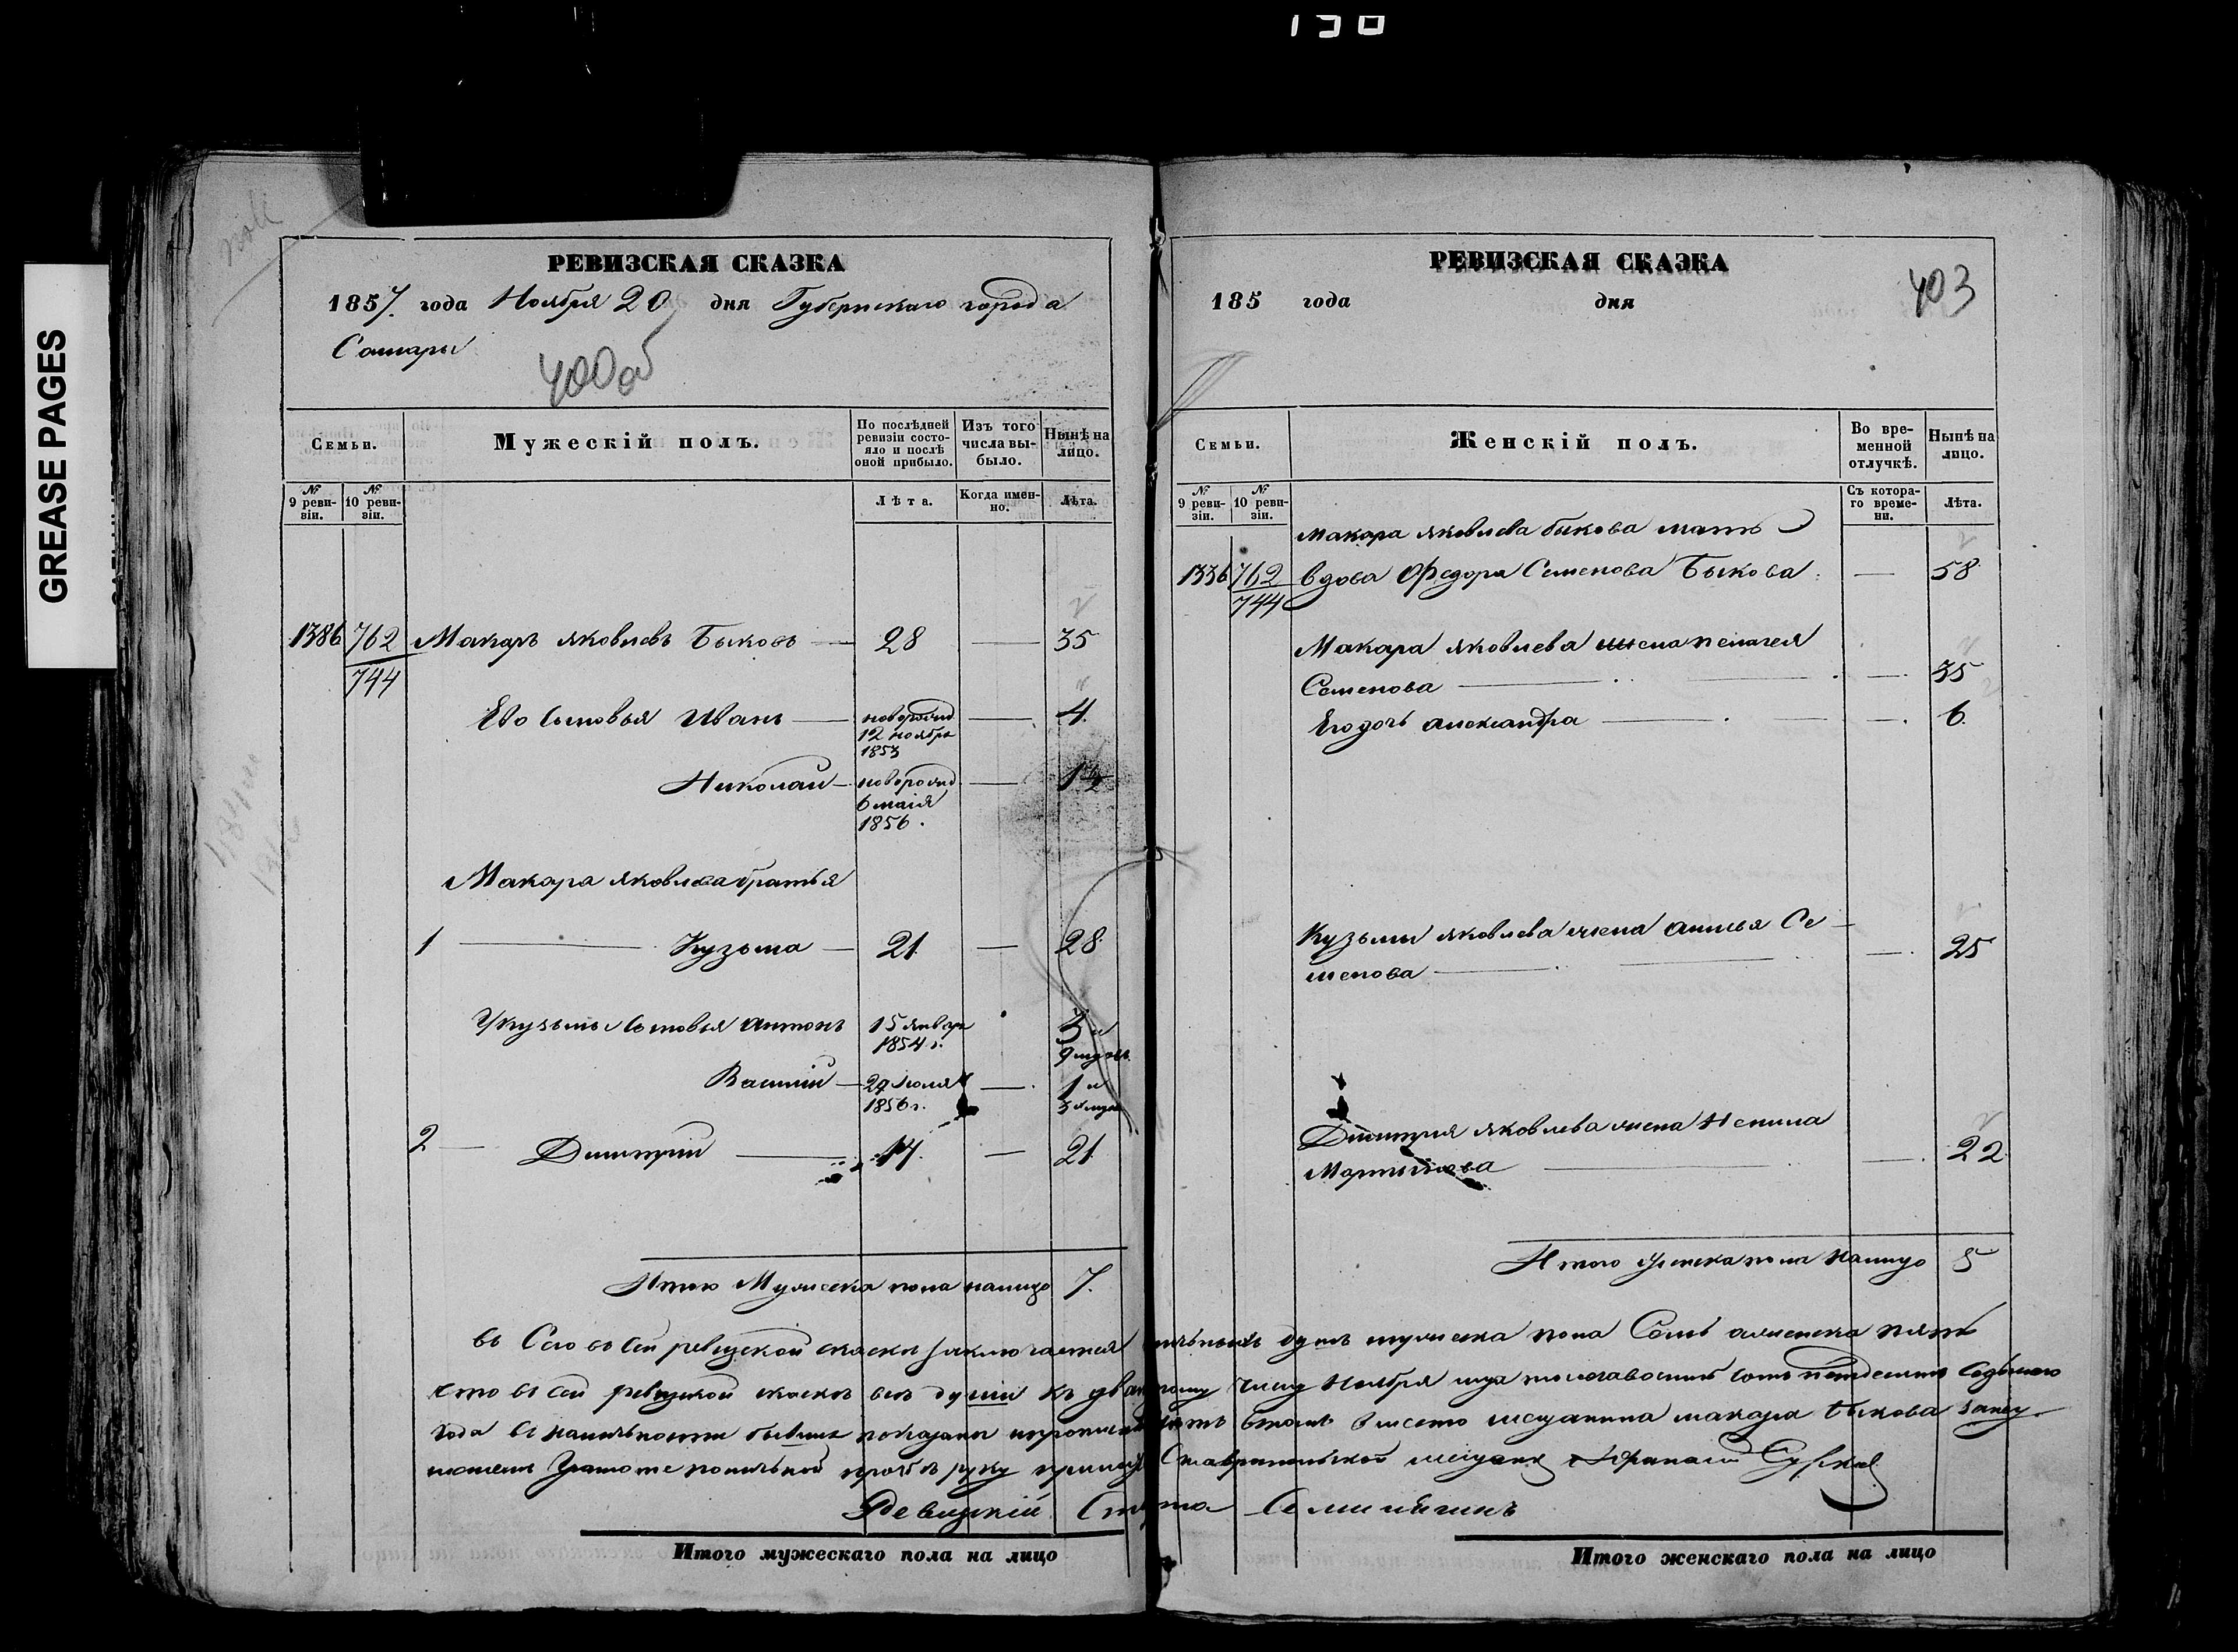 150
GREASE PAGES
РЕВИЗСКАЯ СКАЗКА
1857. года Ноября 20 дня Губернскаго города
Самары
400 об
Семьи.
Мужескій полъ.
По послѣдней ревизіи состояло и послѣ оной прибыло.
Изъ того числа выбыло.
Нынѣ на лицо.
№ 9 ревизіи.
№ 10 ревизіи.
Лѣта.
Когда именно.
Лѣта.
1386 762 Макаръ Яковлевъ Быковъ — 28 — 35
744
Его сыновья Иванъ — новорожд — 4.
12 ноября
1853
Николай — новорожд — 1½
6 маія
1856.
Макара Яковлева братья
1 — Кузьма — 21. — 28.
У Кузьмы сыновья Антонъ 15 января 3 и
1854 г. 9 мцовъ
Василій — 29 Июля — 1 и
1856 г. 3 мца
2 — Димитрій — 14. — 21
Итого Мужеска пола налицо 7.
РЕВИЗСКАЯ СКАЗКА
403
185 года дня
Семьи.
Женскій полъ.
Во временной отлучкѣ.
Нынѣ на лицо.
№ 9 ревизіи.
№ 10 ревизіи.
Съ котораго времени.
Лѣта.
Макара Яковлева Быкова мать
1336 762 вдова Федора Семенова Быкова — 58
744
Макара Яковлева жена Пелагея
Семенова — 35
Его дочь Александра — 6.
Кузьмы Яковлева жена Анисья Се-
менова — 25
Димитрия Яковлева жена Ненила
Мартынова — 22
Итого Женска пола налицо 5
въ сей ревизской сказки заключается душъ мужеска пола Семь а женска пять
что въ сей ревизской сказкѣ всѣ души къ числу Ноября мца пятдесятъ седьмаго
года въ наличности бывшие показаны в томъ вместо мещанина Макара Быкова
грамоте прозбѣ руку Ставропольской мещанинъ
Ревизкій Семилейкинъ
Итого мужескаго пола на лицо
Итого женскаго пола на лицо